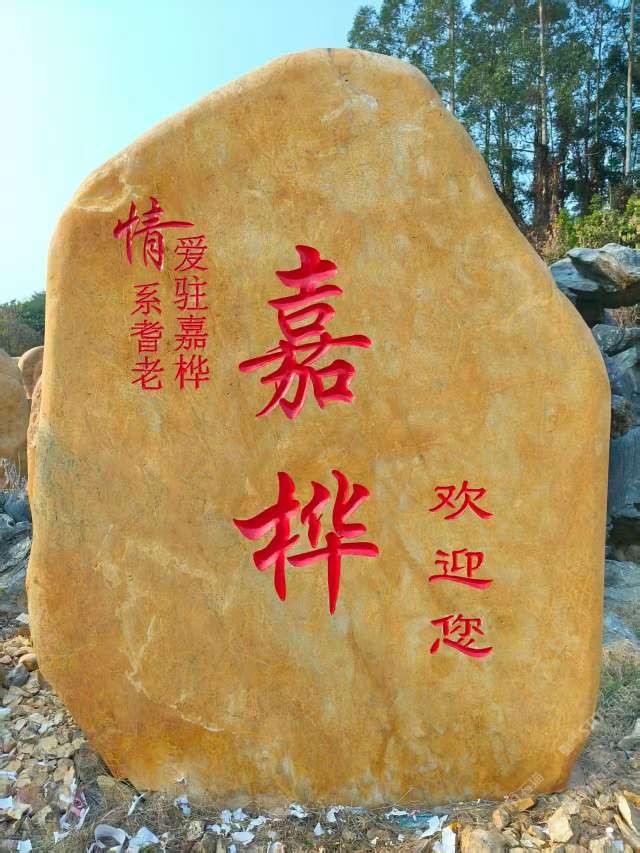 情系耆老
爱驻嘉桦
嘉桦
欢迎您